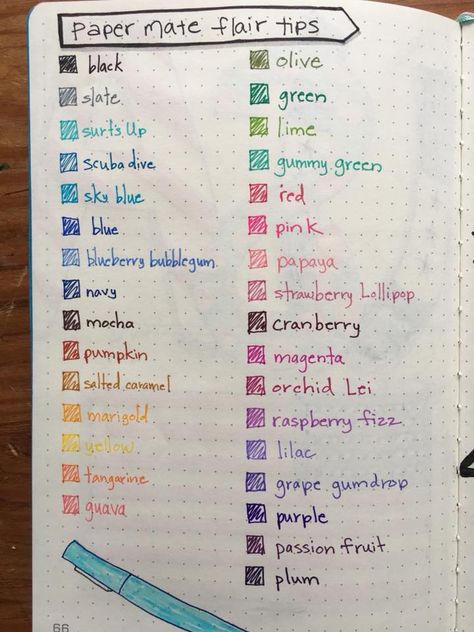 paper mate flair tips
black
slate
surf's Up
scuba dive
sky blue
blue
blueberry bubblegum
navy
mocha
pumpkin
salted caramel
marigold
yellow
tangarine
guava
olive
green
lime
gummy green
red
pink
papaya
strawberry Lollipop
cranberry
magenta
orchid Lei
raspberry fizz
lilac
grape gumdrop
purple
passion fruit
plum
66